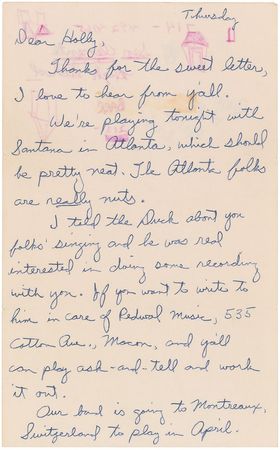 Thursday
Dear Holly,
Thanks for the sweet letter,
I love to hear from y'all.
We're playing tonight with
Santana in Atlanta, which should
be pretty neat. The Atlanta folks
are really nuts.
I told the Duck about you
folks' singing and he was real
interested in doing some recording
with you. If you want to write to
him in care of Redwal Music, 535
Cotton Ave., Macon, and y'all
can play ask-and-tell and work
it out.
Our band is going to Montreaux,
Switzerland to play in April.